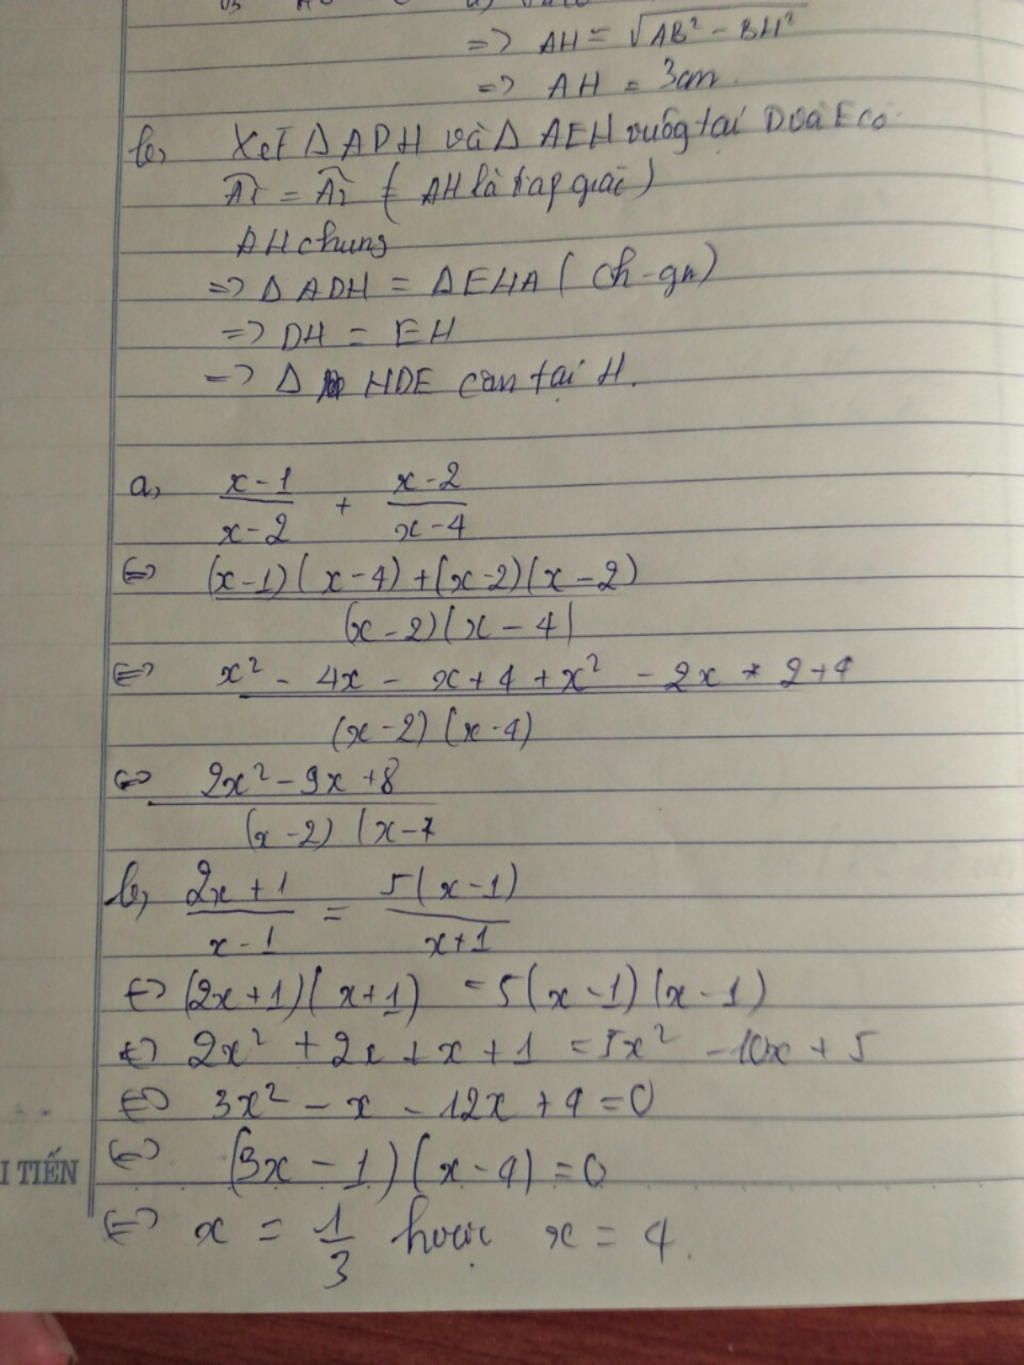 => AH = √AB² - BH²
=> AH = 3cm.
b, Xét Δ ADH và Δ AEH vuông tại D và E có
A1 = A2 ( AH là
AH chung
=> Δ ADH = Δ EHA ( ch-gn)
=> DH = EH
=> Δ HDE cân tại H.
a, x-1/x-2 + x-2/x-4
<=> (x-1)(x-4)+(x-2)(x-2)/(x-2)(x-4)
<=> x² - 4x - x+4+x² - 2x * 2+4/(x-2)(x-4)
<=> 2x²-9x+8/(x-2)(x-7
b, 2x+1/x-1 = 5(x-1)/x+1
<=> (2x+1)(x+1) =5(x-1)(x-1)
<=> 2x² +2x+x+1 =5x² -10x+5
<=> 3x²-x-12x+4=0
<=> (3x-1)(x-4)=0
<=> x = 1/3 hoặc x = 4.
I TIẾN